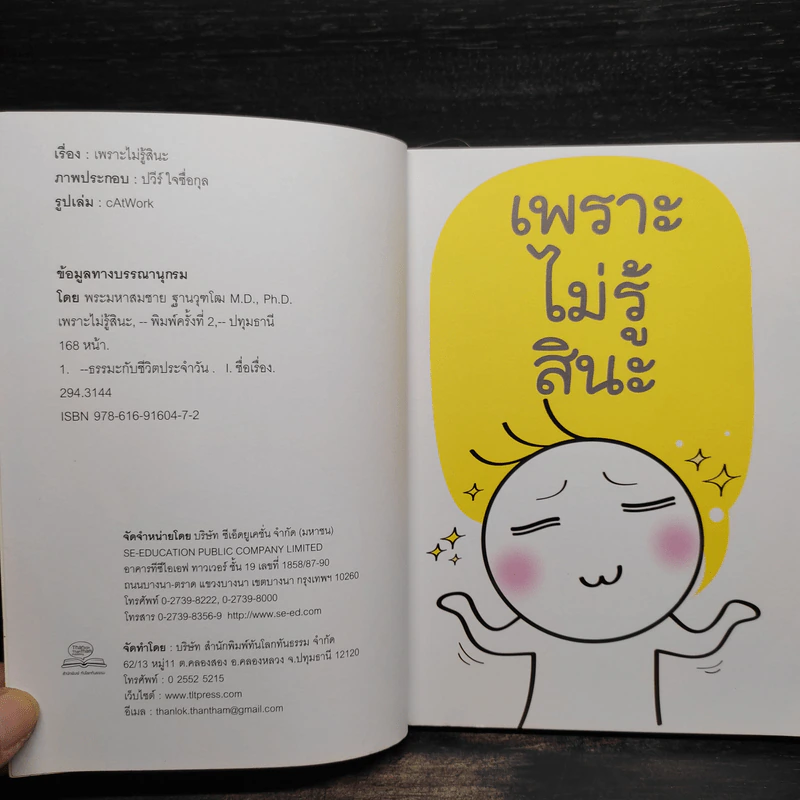 เรื่อง : เพราะไม่รู้สินะ
ภาพประกอบ : ปวีร์ ใจซื่อกุล
รูปเล่ม : cAtWork
ข้อมูลทางบรรณานุกรม
โดย พระมหาสมชาย ฐานวุฑโฒ M.D., Ph.D.
เพราะไม่รู้สินะ, -- พิมพ์ครั้งที่ 2,-- ปทุมธานี
168 หน้า.
1. --ธรรมะกับชีวิตประจำวัน . I. ชื่อเรื่อง.
294.3144
ISBN 978-616-91604-7-2
จัดจำหน่ายโดย บริษัท ซีเอ็ดยูเคชั่น จำกัด (มหาชน)
SE-EDUCATION PUBLIC COMPANY LIMITED
อาคารทีซีไอเอฟ ทาวเวอร์ ชั้น 19 เลขที่ 1858/87-90
ถนนบางนา-ตราด แขวงบางนา เขตบางนา กรุงเทพฯ 10260
โทรศัพท์ 0-2739-8222, 0-2739-8000
โทรสาร 0-2739-8356-9 http://www.se-ed.com
จัดทำโดย : บริษัท สำนักพิมพ์ทันโลกทันธรรม จำกัด
62/13 หมู่11 ต.คลองสอง อ.คลองหลวง จ.ปทุมธานี 12120
โทรศัพท์ : 0 2552 5215
เว็บไซต์ : www.tltpress.com
อีเมล : thanlok.thantham@gmail.com
เพราะ
ไม่รู้
สินะ